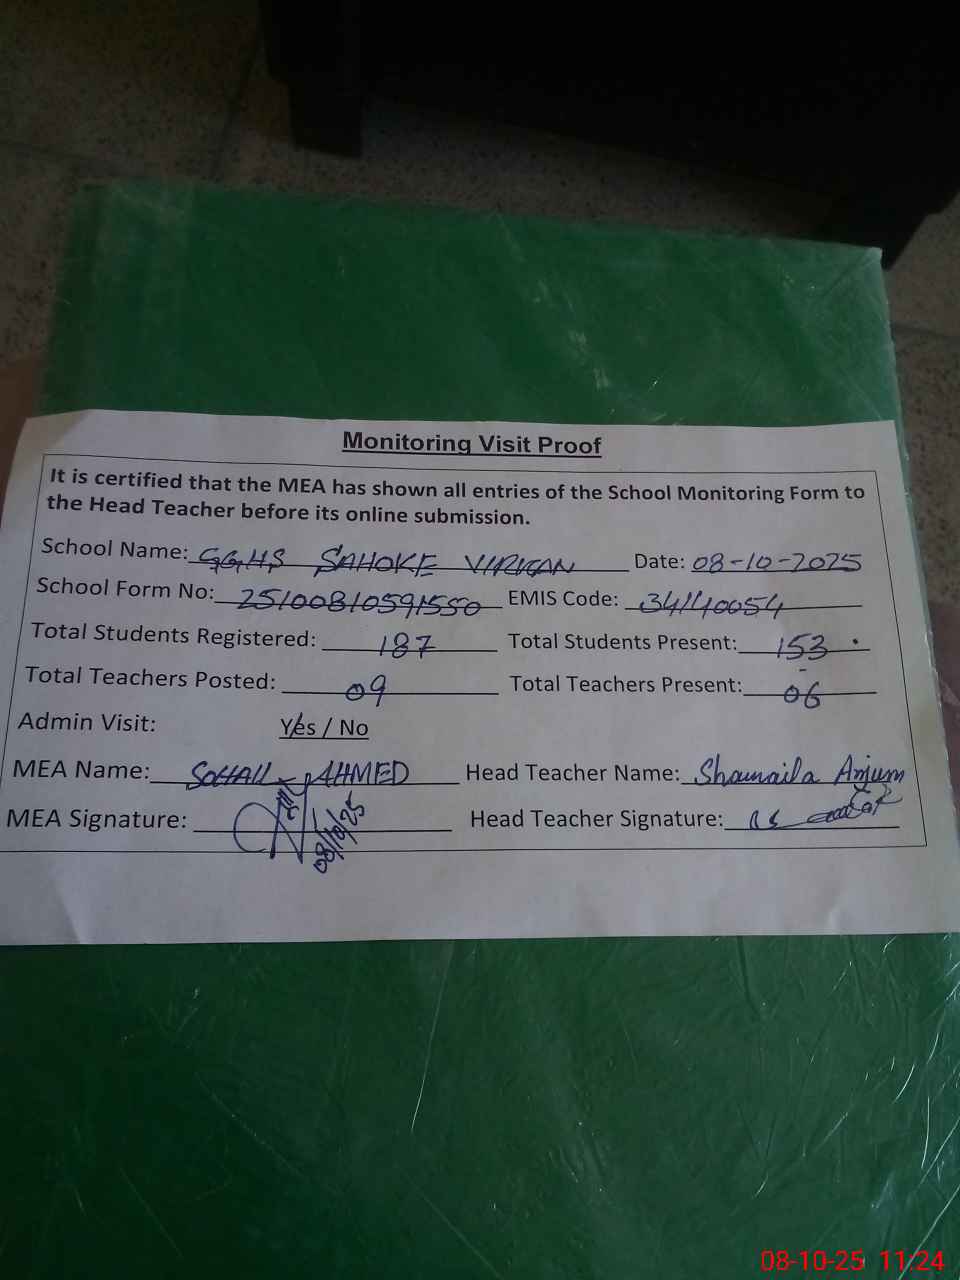 Monitoring Visit Proof
It is certified that the MEA has shown all entries of the School Monitoring Form to
the Head Teacher before its online submission.
School Name: GGHS SAHOKE VIRKAN Date: 08-10-2025
School Form No: 25100810591550 EMIS Code: 34140054
Total Students Registered: 187 Total Students Present: 153
Total Teachers Posted: 09 Total Teachers Present: 06
Admin Visit: Yes / No
MEA Name: SOHAIL AHMED Head Teacher Name: Shaumaila Anjum
MEA Signature: Head Teacher Signature:
08/10/25
08-10-25 11:24